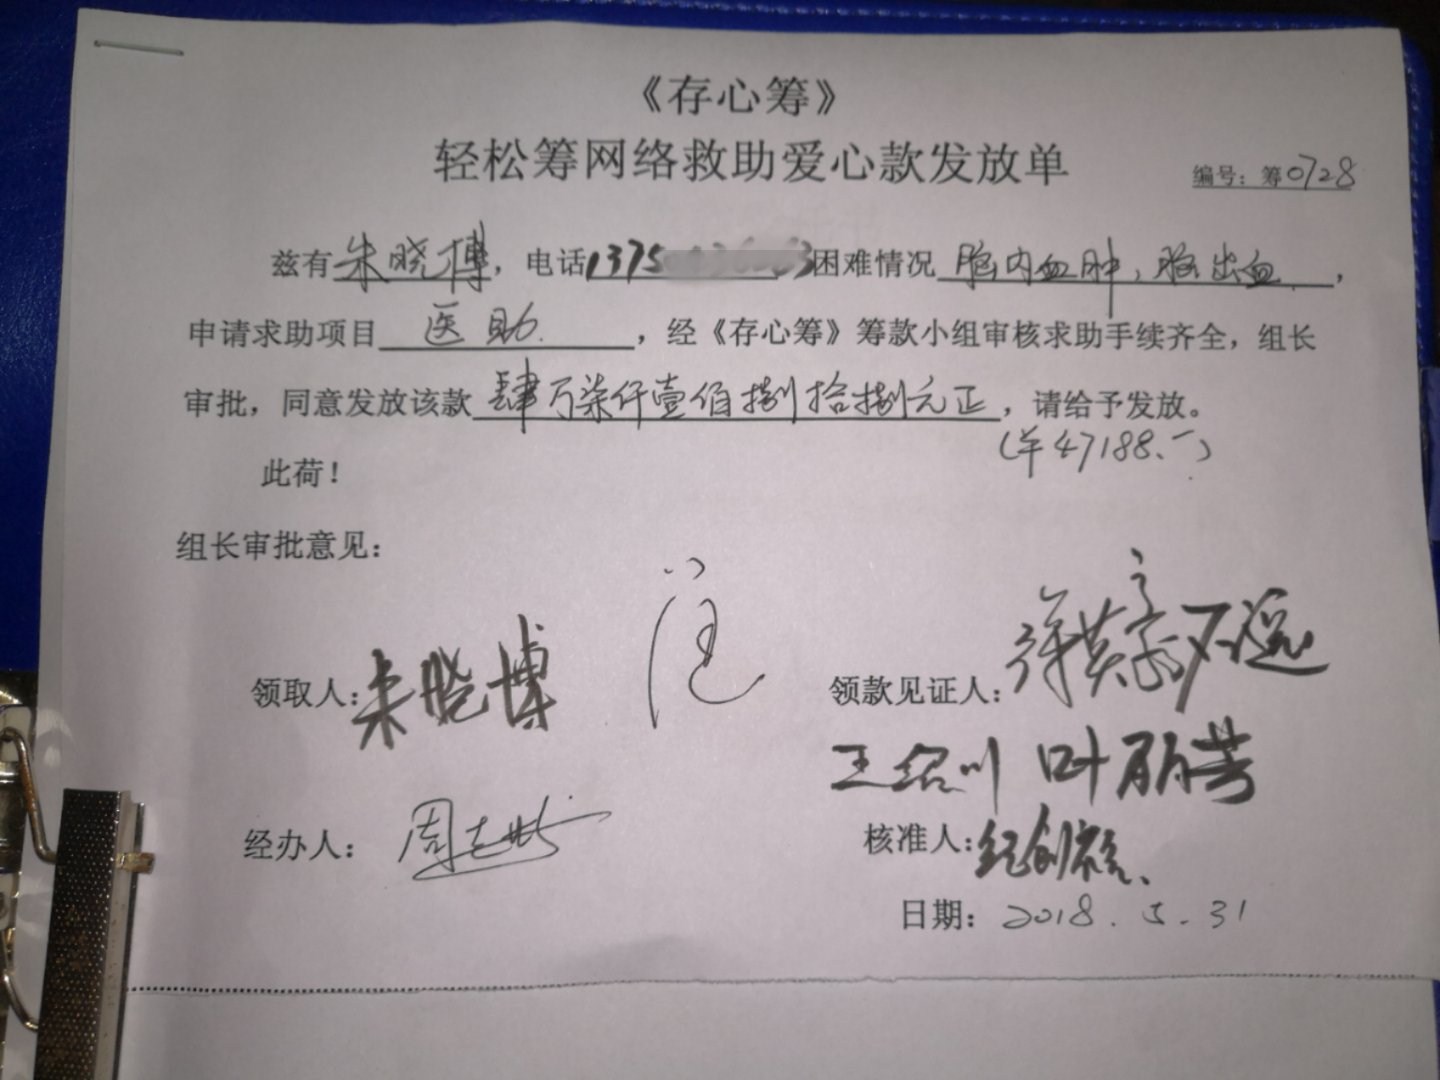 《存心筹》
轻松筹网络救助爱心款发放单
编号：筹0728
兹有朱晓博，电话1375 困难情况脑内血肿、脑出血，
申请求助项目医助，经《存心筹》筹款小组审核求助手续齐全，组长
审批，同意发放该款肆万柒仟壹佰捌拾捌元正，请给予发放。
(¥47188.-)
此荷！
组长审批意见：
领取人：朱晓博
领款见证人：
王绍川 叶丽芳
经办人：周
核准人：
日期：2018.5.31